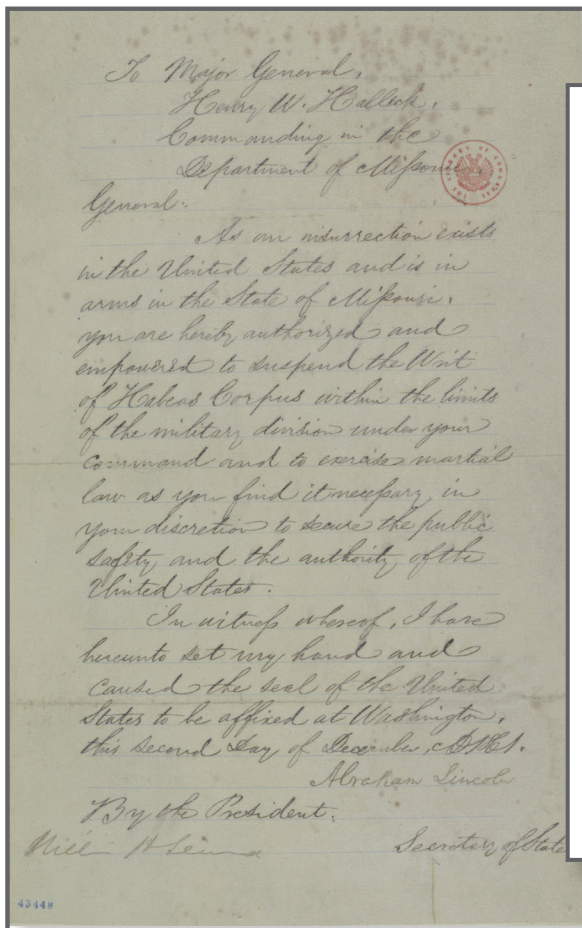 To Major General,
Henry W. Halleck,
Commanding in the
Department of Missouri
General:
As an insurrection exists
in the United States and is in
arms in the State of Missouri,
you are hereby authorized and
empowered to suspend the Writ
of Habeas Corpus within the limits
of the military division under your
command and to exercise martial
law as you find it necessary in
your discretion to secure the public
safety and the authority of the
United States.
In witness whereof, I have
hereunto set my hand and
caused the seal of the United
States to be affixed at Washington,
this second day of December,
Abraham Lincoln
By the President:
Secretary of State
43448